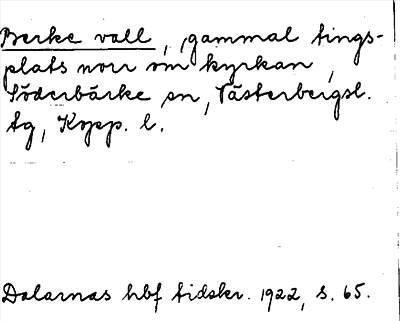 Berke vall, gammal tings-
plats norr om kyrkan,
Söderbärke sn, Västerbergsl.
tg, Kopp. l.
Dalarnas hbf tidskr. 1922, s. 65.